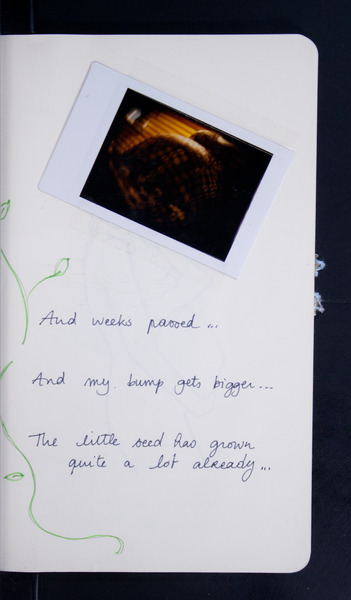 And weeks passed ...
And my bump gets bigger ...
The little seed has grown
quite a lot already ...